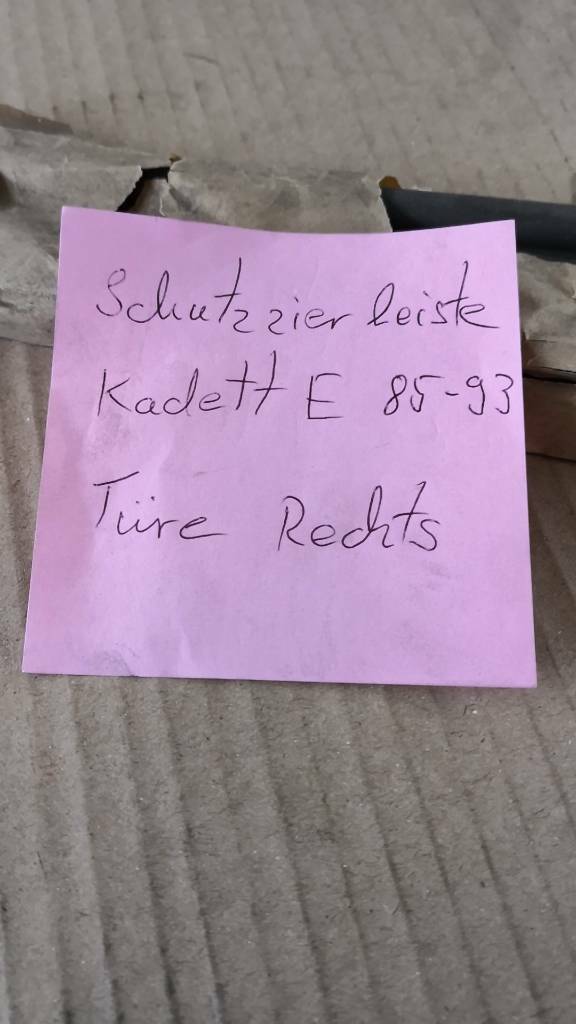 Schutzzierleiste
Kadett E 85-93
Türe Rechts